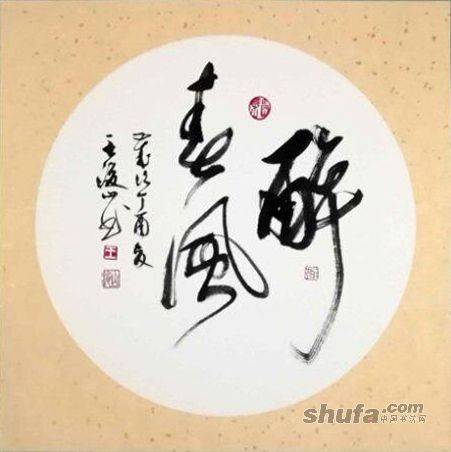 醉
春風
歲次丁酉夏
shufa.com
中国书法网